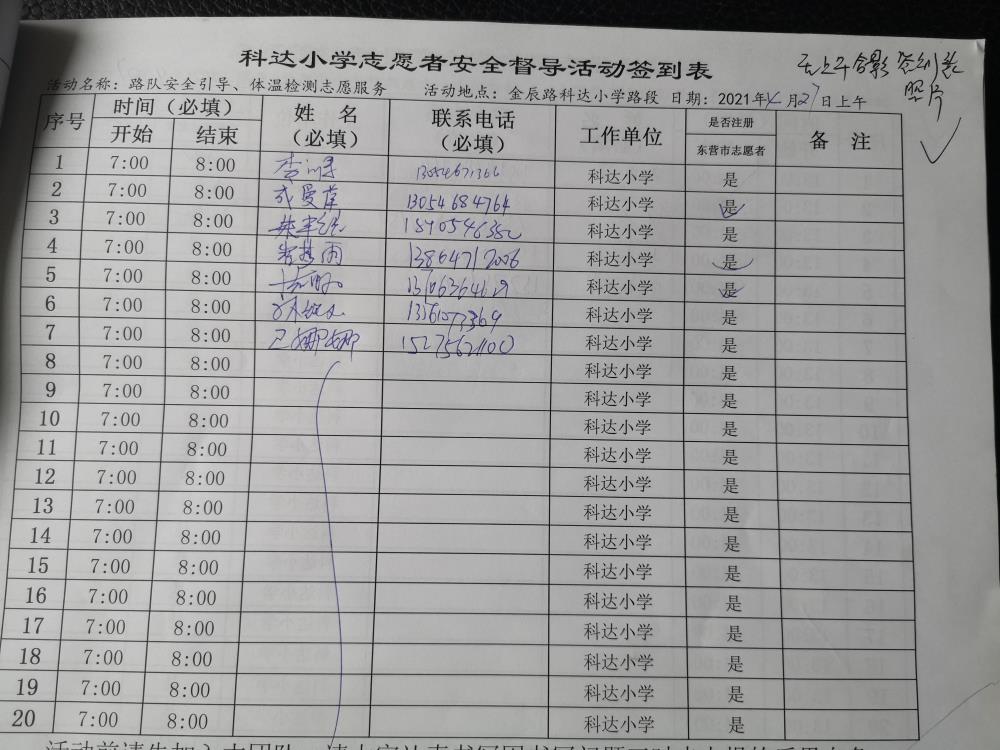 科达小学志愿者安全督导活动签到表
活动名称：路队安全引导、体温检测志愿服务 活动地点：金辰路科达小学路段 日期：2021年4月27日上午
无上午合影 签到表
照片
序号 时间（必填） 姓 名（必填） 联系电话（必填） 工作单位 是否注册东营市志愿者 备 注
开始 结束
1 7:00 8:00 13054671366 科达小学 是
2 7:00 8:00 13054684764 科达小学 是
3 7:00 8:00 科达小学 是
4 7:00 8:00 13864712006 科达小学 是
5 7:00 8:00 科达小学 是
6 7:00 8:00 科达小学 是
7 7:00 8:00 娜娜 15275621100 科达小学 是
8 7:00 8:00 科达小学 是
9 7:00 8:00 科达小学 是
10 7:00 8:00 科达小学 是
11 7:00 8:00 科达小学 是
12 7:00 8:00 科达小学 是
13 7:00 8:00 科达小学 是
14 7:00 8:00 科达小学 是
15 7:00 8:00 科达小学 是
16 7:00 8:00 科达小学 是
17 7:00 8:00 科达小学 是
18 7:00 8:00 科达小学 是
19 7:00 8:00 科达小学 是
20 7:00 8:00 科达小学 是